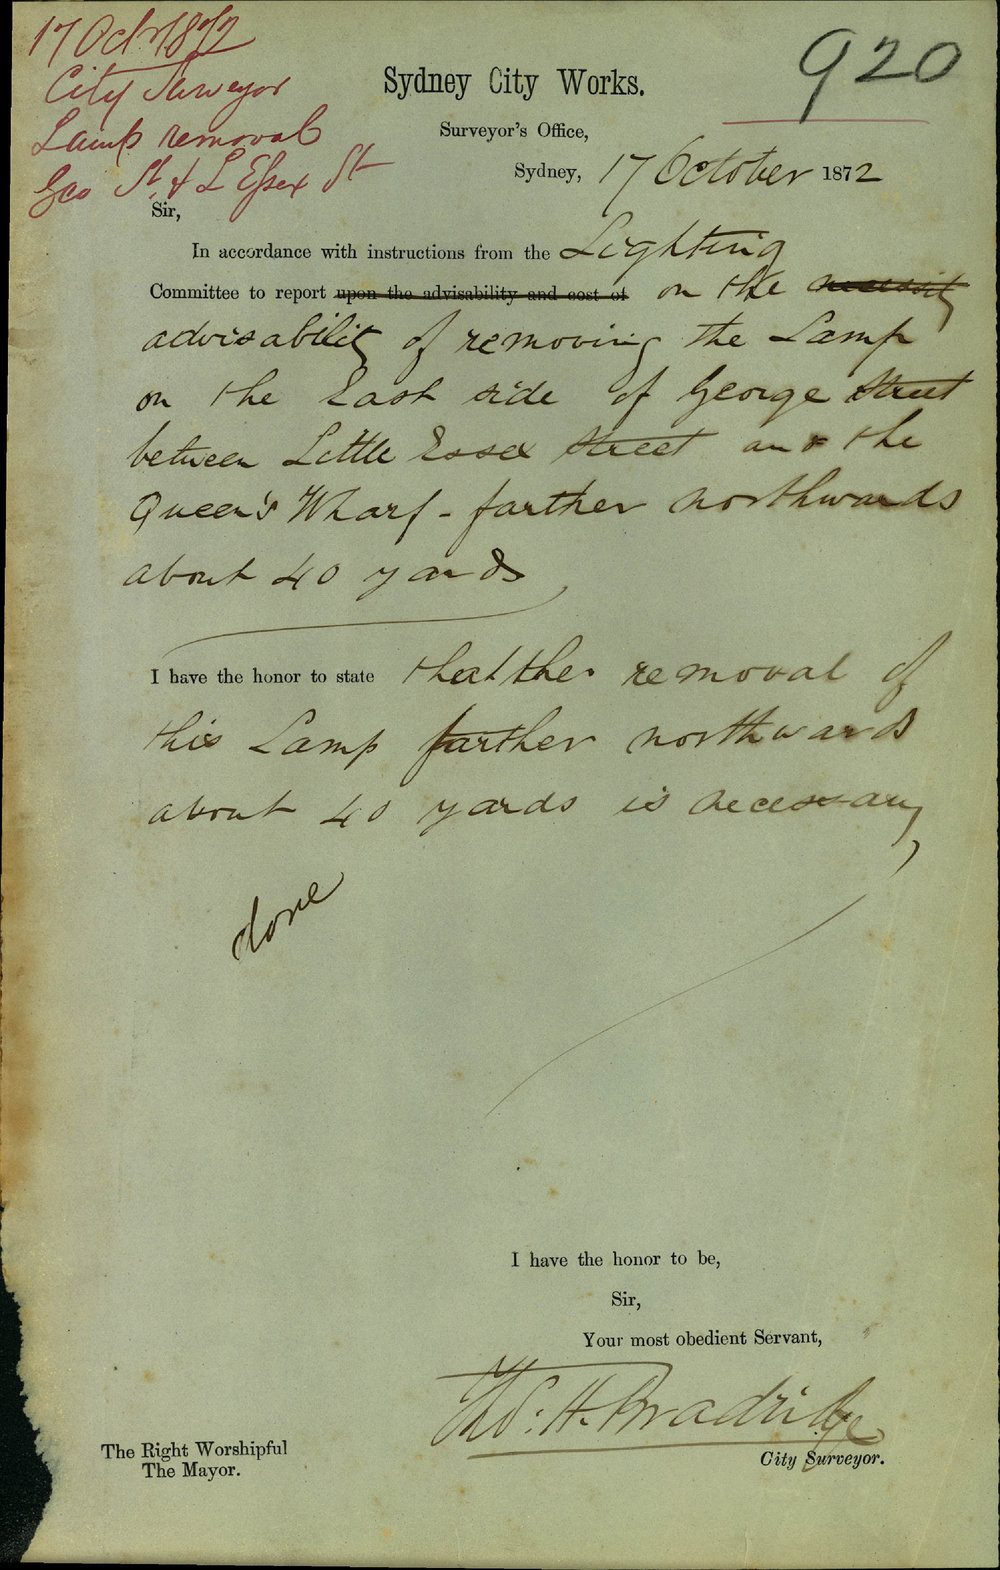 17 Oct 1872
City Surveyor
Lamp removal
Geo St & L Essex St
920
Sydney City Works.
Surveyor's Office,
Sydney, 17 October 1872
Sir,
In accordance with instructions from the Lighting
Committee to report upon the advisability and cost of on the necessity
advisability of removing the Lamp
on the East side of George Street
between Little Essex Street and the
Queen's Wharf - farther northwards
about 40 yards
I have the honor to state that the removal of
this Lamp farther northwards
about 40 yards is necessary
done
I have the honor to be,
Sir,
Your most obedient Servant,
Thos. H. Bradridge
City Surveyor.
The Right Worshipful
The Mayor.